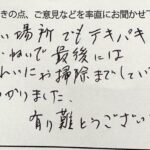 きの点、ご意見などを率直にお聞かせ
い場所でもテキパキ
ねいで最後には
れいにお掃除までしてい
かりました。
有り難とうござい